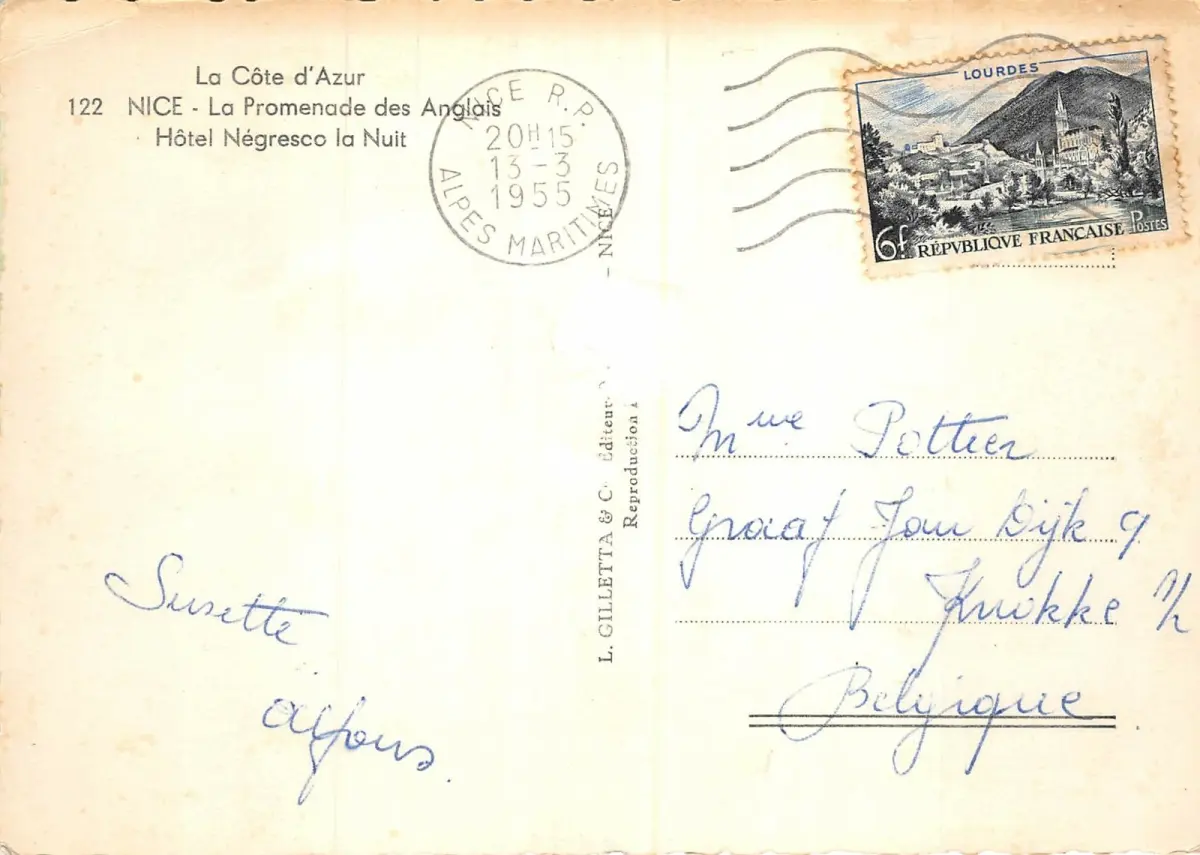 La Côte d'Azur
122 NICE - La Promenade des Anglais
Hôtel Négresco la Nuit
NICE R.P.
20H15
13-3
1955
ALPES MARITIMES
LOURDES
6f RÉPVBLIQVE FRANÇAISE POSTES
L. GILLETTA & Cie Éditeur - NICE
Reproduction
Mme Pottier
Graaf Jan Dijk 9
Knokke
Belgique
Susette
Alfons